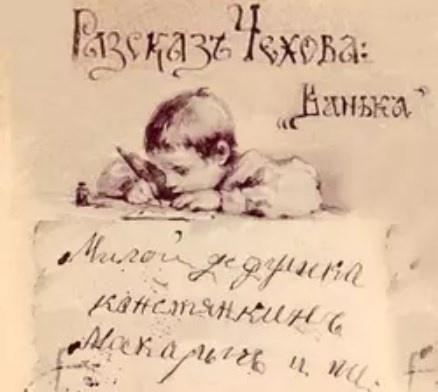 Разсказъ Чехова:
„Ванька"
Милой дедушка
канстянкинъ
Макарычъ и